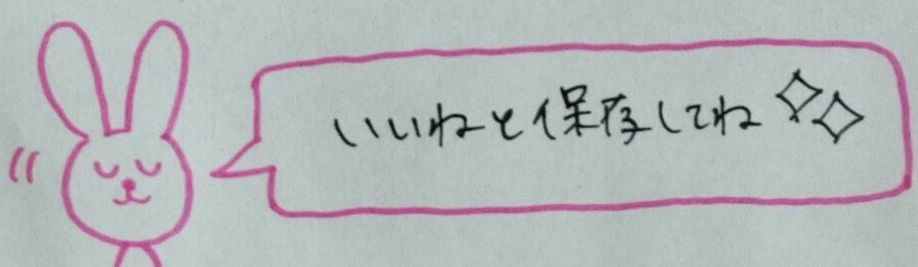 いいねと保存してね